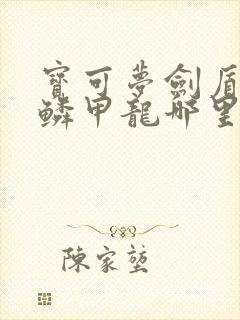 寶可夢劍盾
鱗甲龍哪里
陳家堃